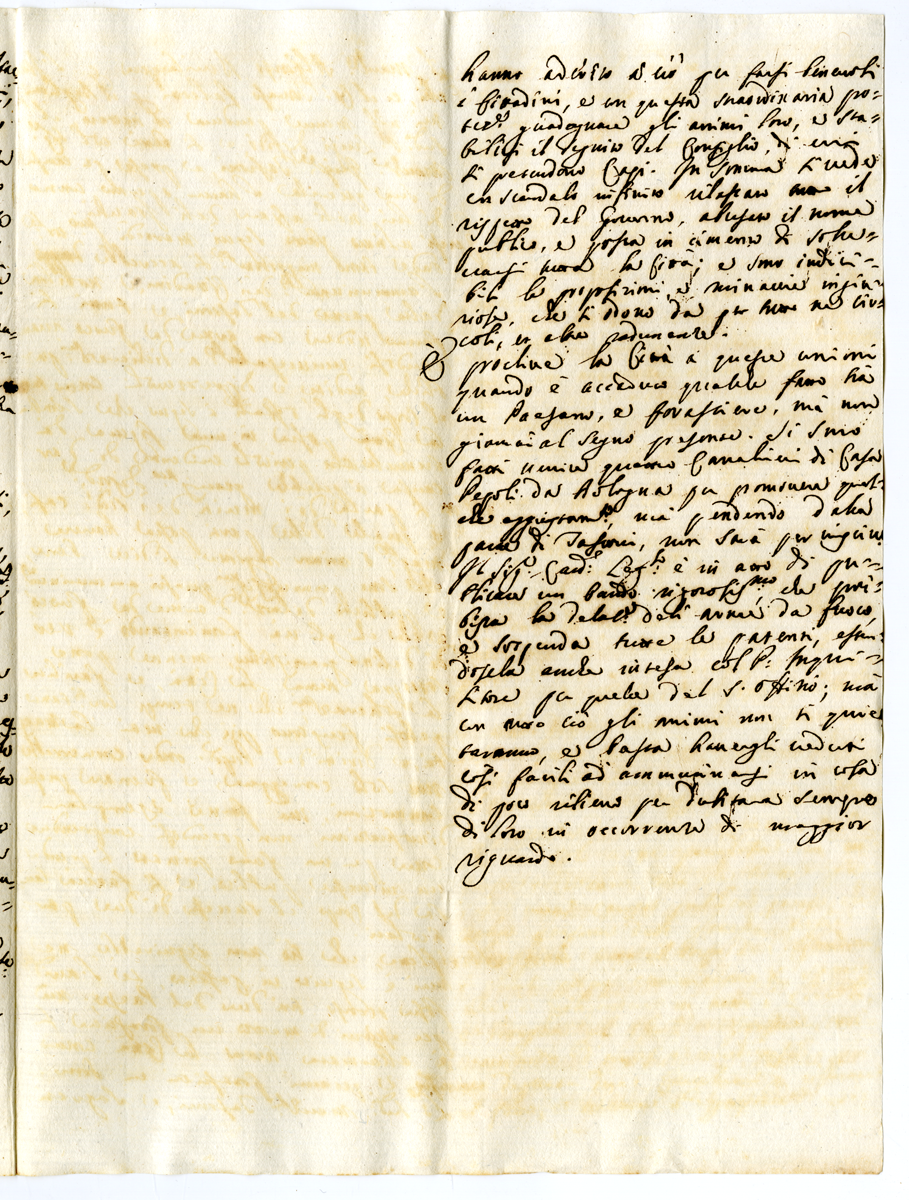 hanno aderito à ciò per farsi benevoli
i Cittadini, e con questa straordinaria po=
tenza guadagnare gli animi loro, e sta=
bilirsi il seguito del Conseglio, di cui
si pretendono Capi. In somma si vede
con scandalo infinito rilassato il
rispetto del Governo, abusato il nome
publico, e posta in cimento di solle=
varsi tutta la Città; e sono indici=
bili le proposizioni, e minaccie ingiu=
riose, che si odono da per tutto ne Cir=
coli, et altre radunanze.
È proclive la Città a queste unioni
quando è accaduto qualche fatto trà
un Paesano, e forastiere, mà non
giamai al segno presente. Si sono
fatti venire quattro Cavalieri di Casa
Pepoli da Bologna per promovere qual=
che aggiustamto, mà pendendo dalla
parte di Tassoni, non sarà per
Il Sigr Cardl Legto è in atto di pu=
blicare un bando rigorosismo, che proi=
bisca la delate dell'armi da fuoco,
e sospenda tutte le patenti,
dosela anche intesa col P. Inqui=
sitore per quelle del S. Offitio; mà
con tutto ciò gli animi non si quie
taranno, e basta havergli veduti
così facili ad ammutinarsi in cosa
di poco rilievo per dubitare sempre
di loro in occorrenze di maggior
riguardo.